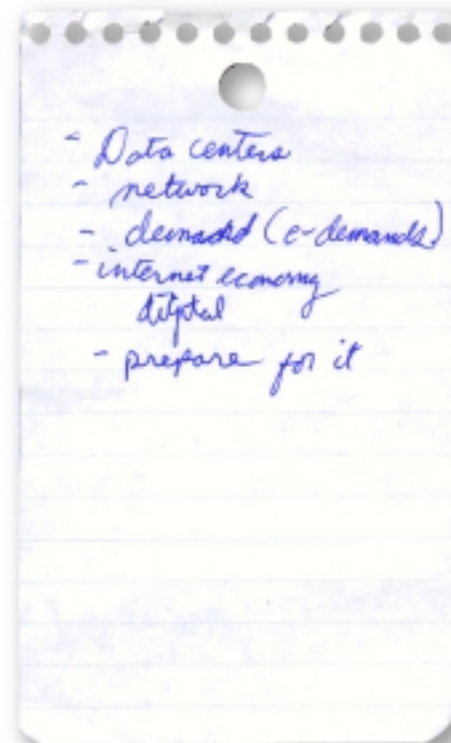 - Data centers
- network
- demand (e-demands)
- internet economy
digital
- prepare for it